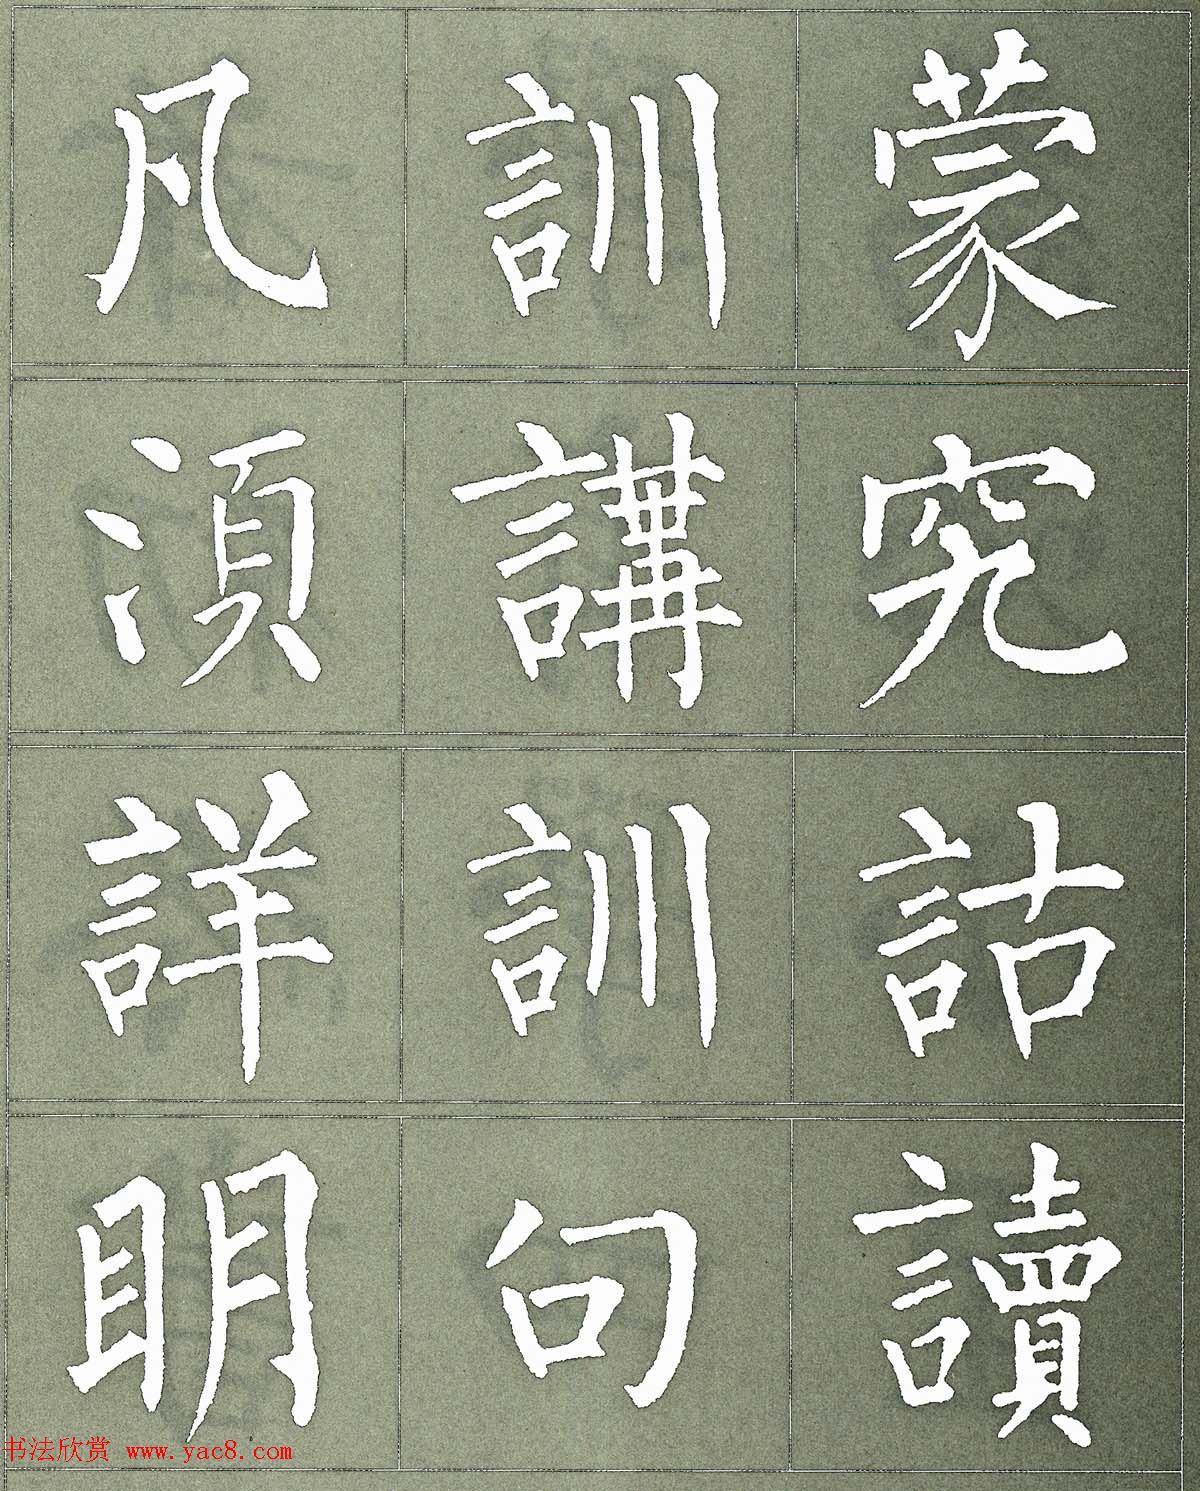 凡訓蒙
湏講究
詳訓詁
明句讀
书法欣赏 www.yac8.com